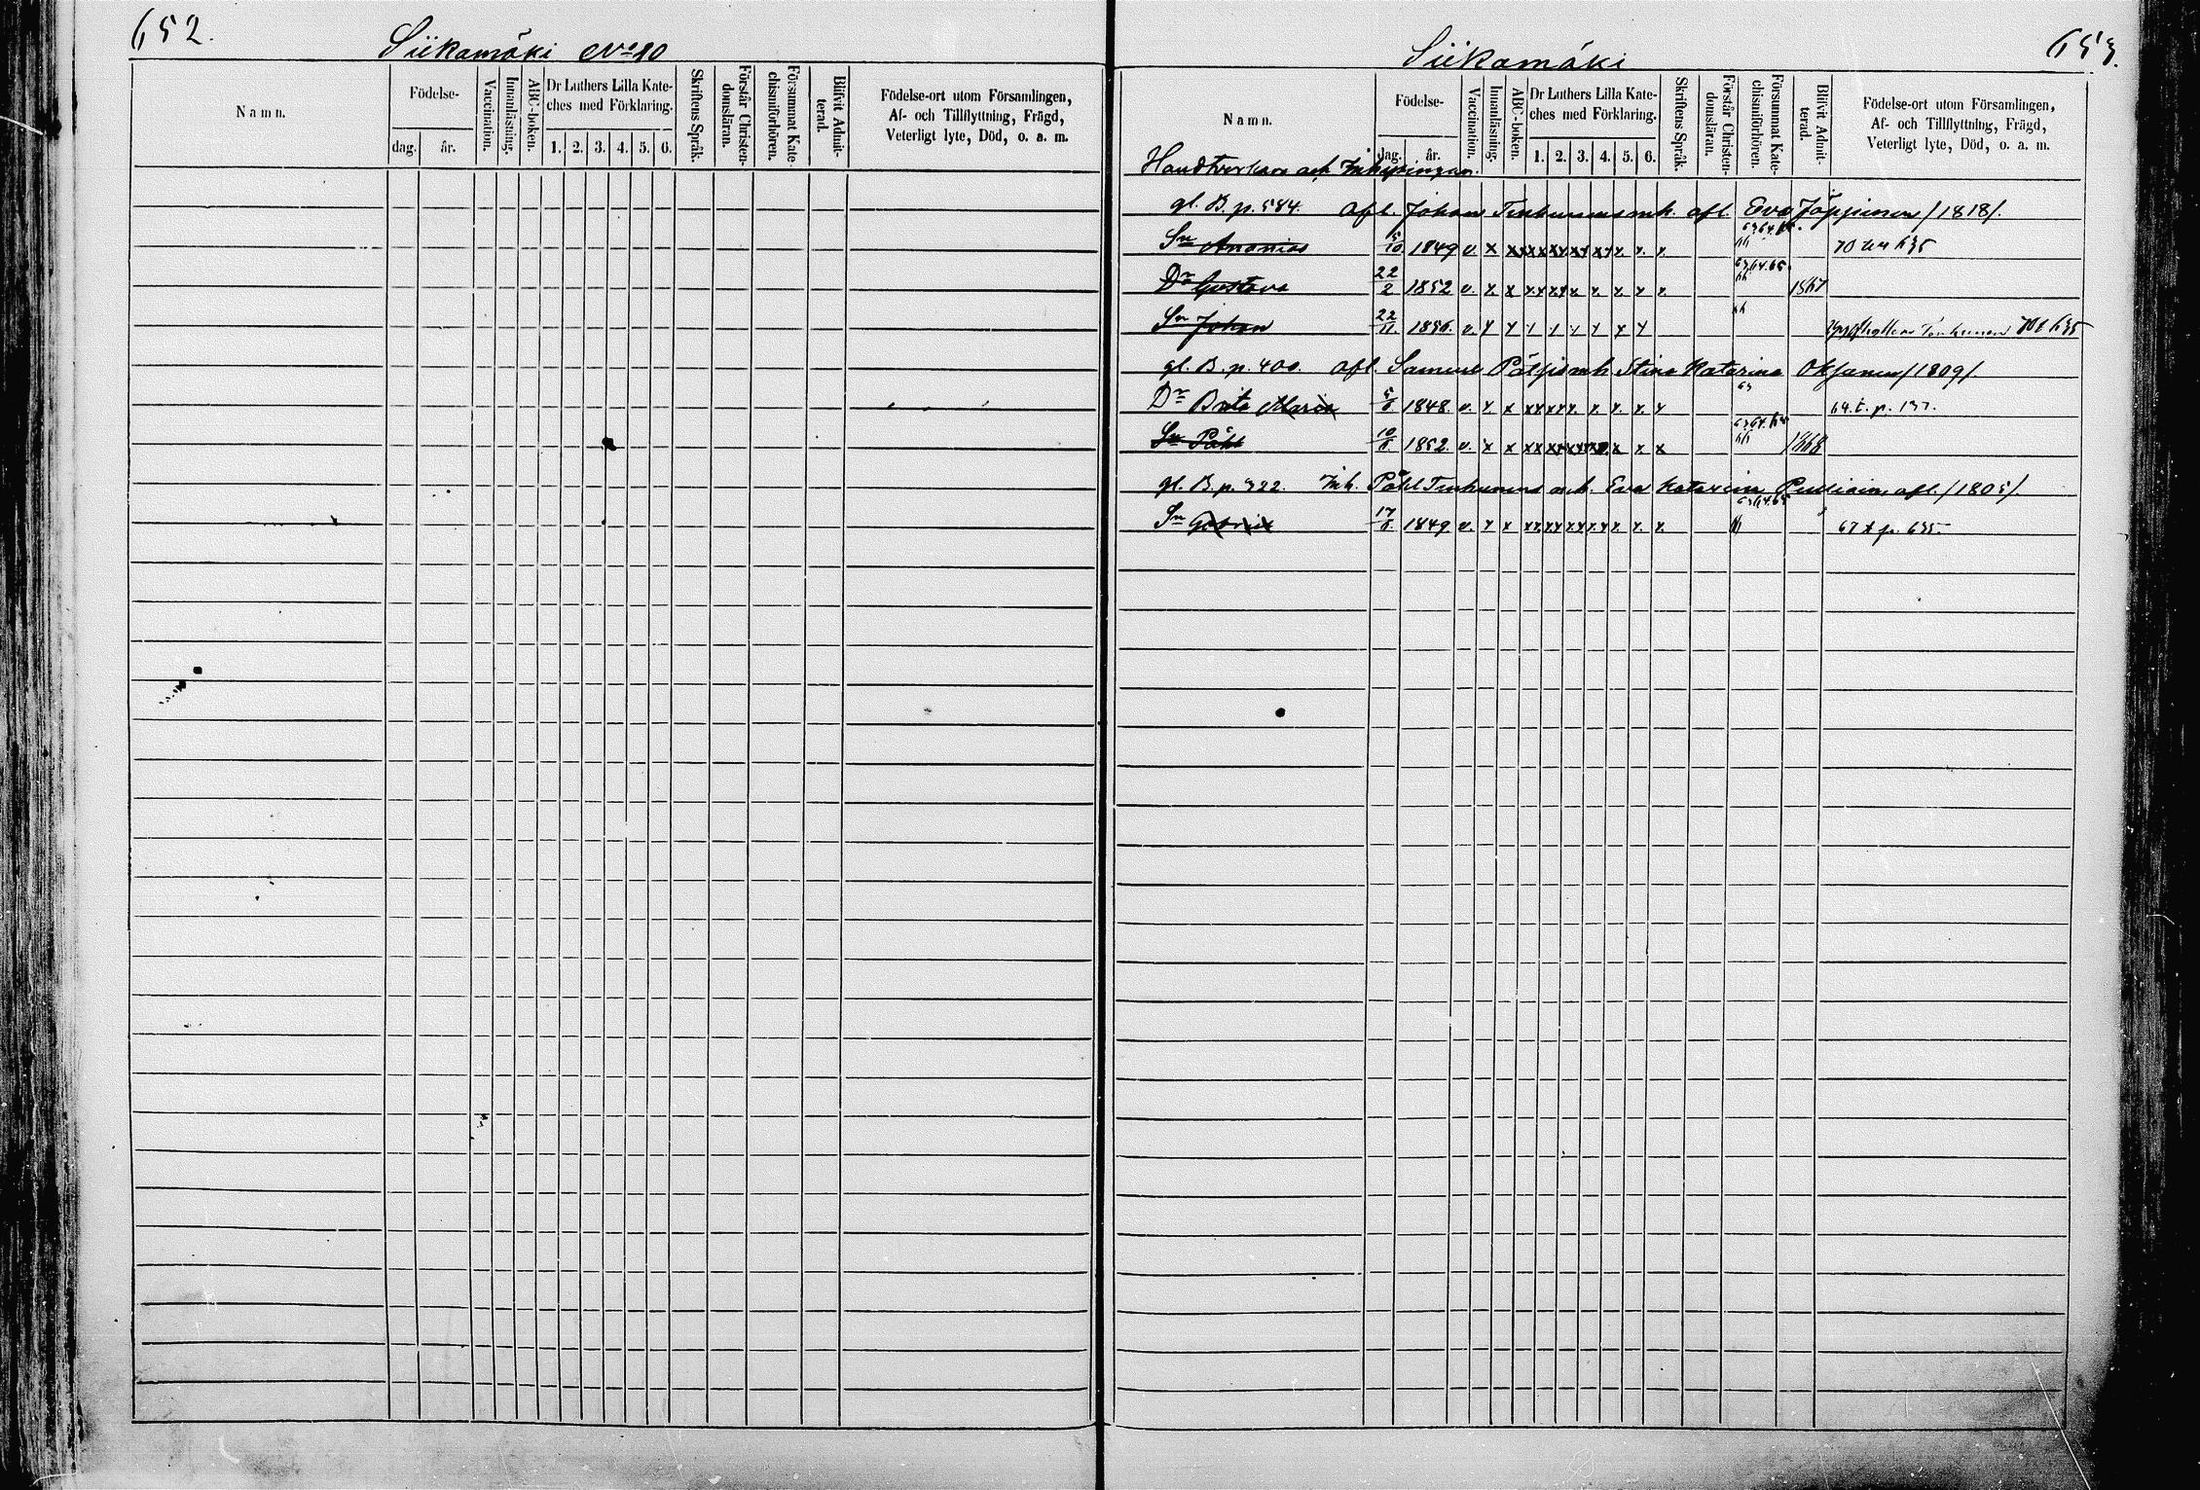 652.
Siikamäki No 10
Namn.
Födelse-
dag. år.
Vaccination.
Innanläsning.
ABC-boken.
Dr Luthers Lilla Kate-
ches med Förklaring.
1. 2. 3. 4. 5. 6.
Skriftens Språk.
Förstår Christen-
domsläran.
Försummat Kate-
chismiförhören.
Blifvit Admit-
terad.
Födelse-ort utom Församlingen,
Af- och Tillflyttning, Frägd,
Veterligt lyte, Död, o. a. m.
653.
Siikamäki
Namn.
Födelse-
dag. år.
Vaccination.
Innanläsning.
ABC-boken.
Dr Luthers Lilla Kate-
ches med Förklaring.
1. 2. 3. 4. 5. 6.
Skriftens Språk.
Förstår Christen-
domsläran.
Försummat Kate-
chismiförhören.
Blifvit Admit-
terad.
Födelse-ort utom Församlingen,
Af- och Tillflyttning, Frägd,
Veterligt lyte, Död, o. a. m.
Handtverkare och Inhysingar.
gl. B. p. 584. afl. Johan Tenhunens och afl. Eva /1818/.
Sn Ananias 5/10 1849 v. x x x x x x x x x x 70 635
Dr Gustava 22/2 1852 v. x x x x x x x x x 1867
Sn Johan 22/11 1856. v. x x x x x x x x 635
gl. B. p. 400. afl. Samuel och Stina Katarina Oksanen /1809/.
Dr Brita Maria 5/6 1848. v. x x x x x x x x x 63 64. t. p. 137.
Sn Påhl 10/6. 1852. v. x x x x x x x x x 1868
gl. B. p. 322. Inh. Påhl Tenhunens och Eva Katarina afl. /1805/.
Sn Gabriel 17/6. 1849 v. x x x x x x x x x 67 t p. 635.